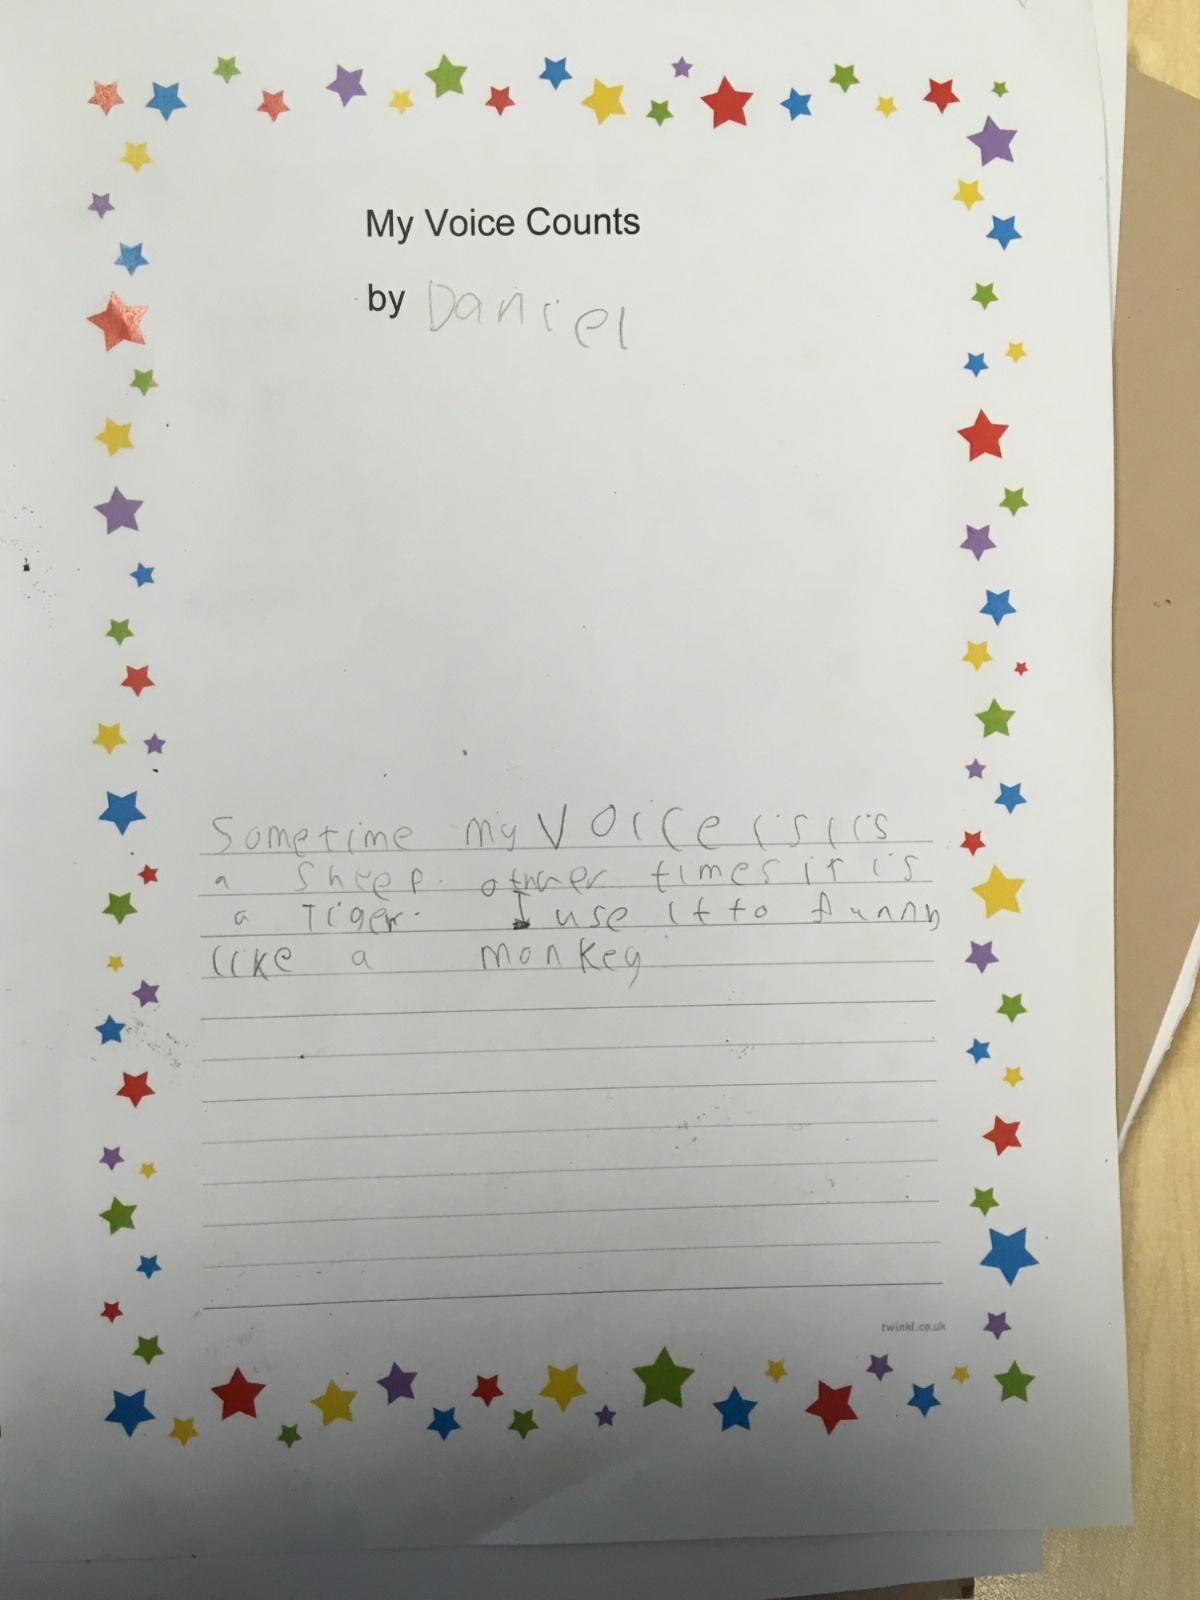 My Voice Counts
by Daniel
Sometime my voice is is
a sheep. other times it is
a Tiger. I use it to funny
like a monkey
twinkl.co.uk